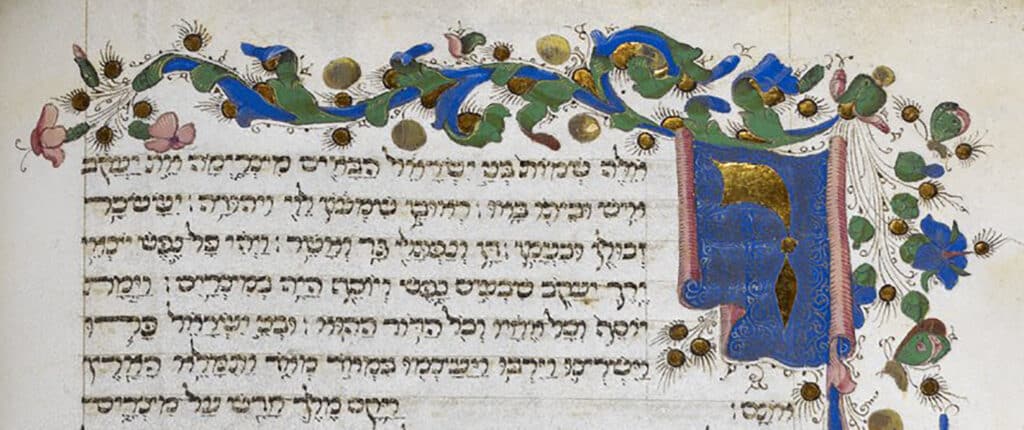 ו
אלה שמות בני ישראל הבאים מצרימה את יעקב
איש וביתו באו: ראובן שמעון לוי ויהודה: יששכר
זבולן ובנימן: דן ונפתלי גד ואשר: ויהי כל נפש יצאי
ירך יעקב שבעים נפש ויוסף היה במצרים: וימת
יוסף וכל אחיו וכל הדור ההוא: ובני ישראל פרו
וישרצו וירבו ויעצמו במאד מאד ותמלא הארץ
אתם: ויקם מלך חדש על מצרים